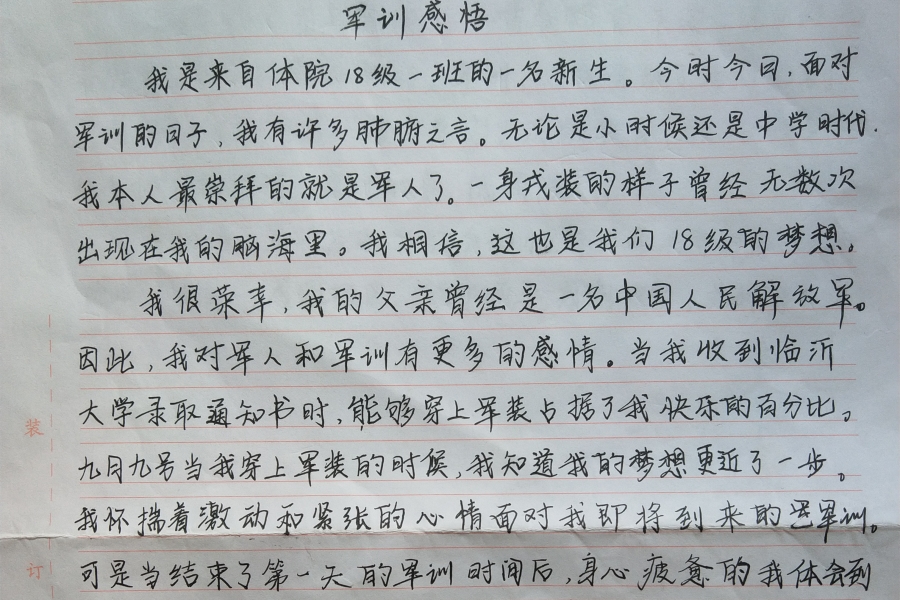 军训感悟
我是来自体院18级一班的一名新生。今时今日,面对
军训的日子,我有许多肺腑之言。无论是小时候还是中学时代.
我本人最崇拜的就是军人了。一身戎装的样子曾经无数次
出现在我的脑海里。我相信,这也是我们18级的梦想。
我很荣幸,我的父亲曾经是一名中国人民解放军。
因此,我对军人和军训有更多的感情。当我收到临沂
大学录取通知书时,能够穿上军装占据了我快乐的百分比。
九月九号当我穿上军装的时候,我知道我的梦想更近了一步。
我怀揣着激动和紧张的心情面对我即将到来的军训。
可是当结束了第一天的军训时间后,身心疲惫的我体会到
装
订